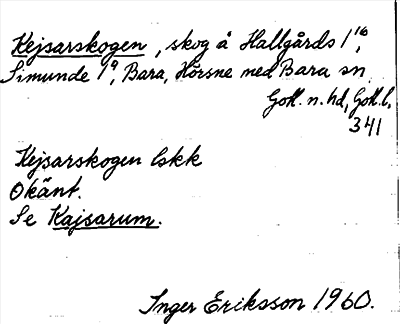 Kejsarskogen, skog å Hallgårds 1¹⁶,
Simunde 1⁹, Bara, Hörsne med Bara sn.
Gotl. n. hd, Gotl. l.
341
Kejsarskogen lskk
Okänt.
Se Kajsarum.
Inger Eriksson 1960.